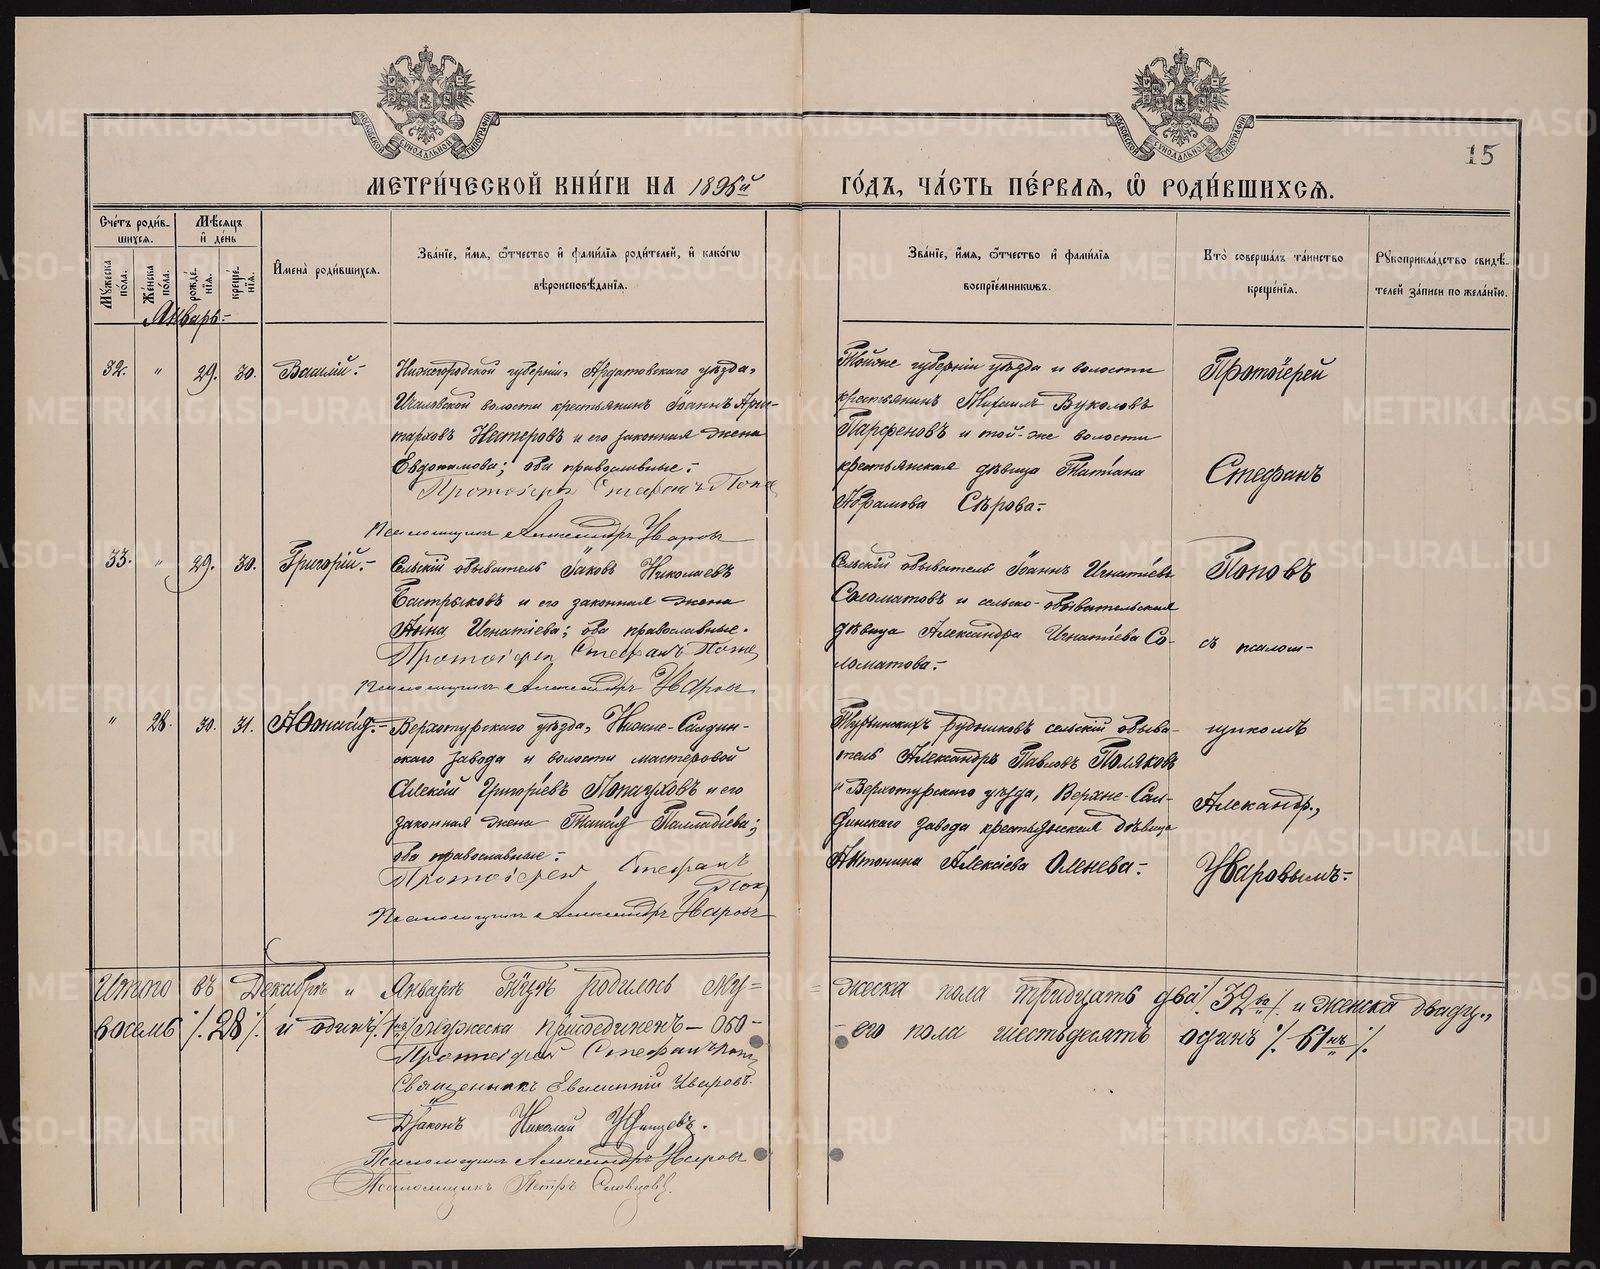 МЕТРИ́ЧЕСКОЙ КНИ́ГИ НА 1896й ГО́ДЪ, ЧА́СТЬ ПЕ́РВАѦ, Ѽ РОДИ́ВШИХСѦ.
15
Сче́тъ роди́в-
шихся.
Мѣ́сяцъ
и҆ де́нь
Мꙋ́жеска по́ла.
Же́нска по́ла.
рожде́нїя.
креще́нїя.
И҆мена̀ роди́вшихся.
Зва́нїе, и҆́мя, ѻ҆́тчество и҆ фами́лїя роди́телей, и҆ како́гѡ
вѣроисповѣ́данїя.
Зва́нїе, и҆́мя, ѻ҆́тчество и҆ фами́лїя
воспрїе́мникѡвъ.
Кто̀ соверша́лъ та́инство
креще́нїя.
Рꙋкоприкла́дство свидѣ́-
телей за́писи по жела́нїю.
Январь.-
32. " 29. 30. Василій.-
Нижегородской губерніи, Ардатовскаго уѣзда,
волости крестьянинъ Іоаннъ Арис-
тарховъ Нестеровъ и его законная жена
Евдокимова; оба православные.-
Протоіерей Стефанъ Попо
Псаломщикъ Александръ Уваровъ
Той же губерніи уѣзда и волости
крестьянинъ Михаилъ Вуколовъ
Парфеновъ и той-же волости
крестьянская дѣвица Татіана
Абрамова Сѣрова.-
Протоіерей
Стефанъ
33. " 29. 30. Григорій.-
Сельскій обыватель Іаковъ Николаевъ
Бастрыковъ и его законная жена
Анна Игнатіева; оба православные.
Протоіерей Стефанъ Попо
Псаломщикъ Александръ Уваровъ
Сельскій обыватель Іоаннъ Игнатіевъ
Соломатовъ и сельско-обывательская
дѣвица Александра Игнатіева Со-
ломатова.-
Поповъ
съ псалом-
" 28. 30. 31.
Верхотурскаго уѣзда, Нижне-Салдин-
скаго завода и волости мастеровой
Алексій Григоріевъ и его
законная жена Таисія Палладіева;
оба православные.-
Протоіерей Стефанъ
Поп
Псаломщикъ Александръ Уваровъ
Турьинскихъ рудниковъ сельскій обыва-
тель Александръ Павловъ Поляковъ
и Верхотурскаго уѣзда, Верхне-Сал-
динскаго завода крестьянская дѣвица
Антонина Алексіева Оленева.-
щикомъ
Александр.,
Уваровымъ.-
Итого въ Декабрѣ и Январѣ родилось Му= =жеска пола тридцать два /.32ва/. и женска двадц.,
восемь /.28/. и одинъ /.1нъ/. мужеска присоединенъ - обо- -его пола шестьдесятъ одинъ /. 61нъ /.
Протоіерей Стефанъ Поп
Священникъ Евлампій Уваровъ.
Діаконъ Николай
Псаломщикъ Александръ Уваровъ
Псаломщикъ Петръ Словцовъ.
METRIKI.GASO-URAL.RU